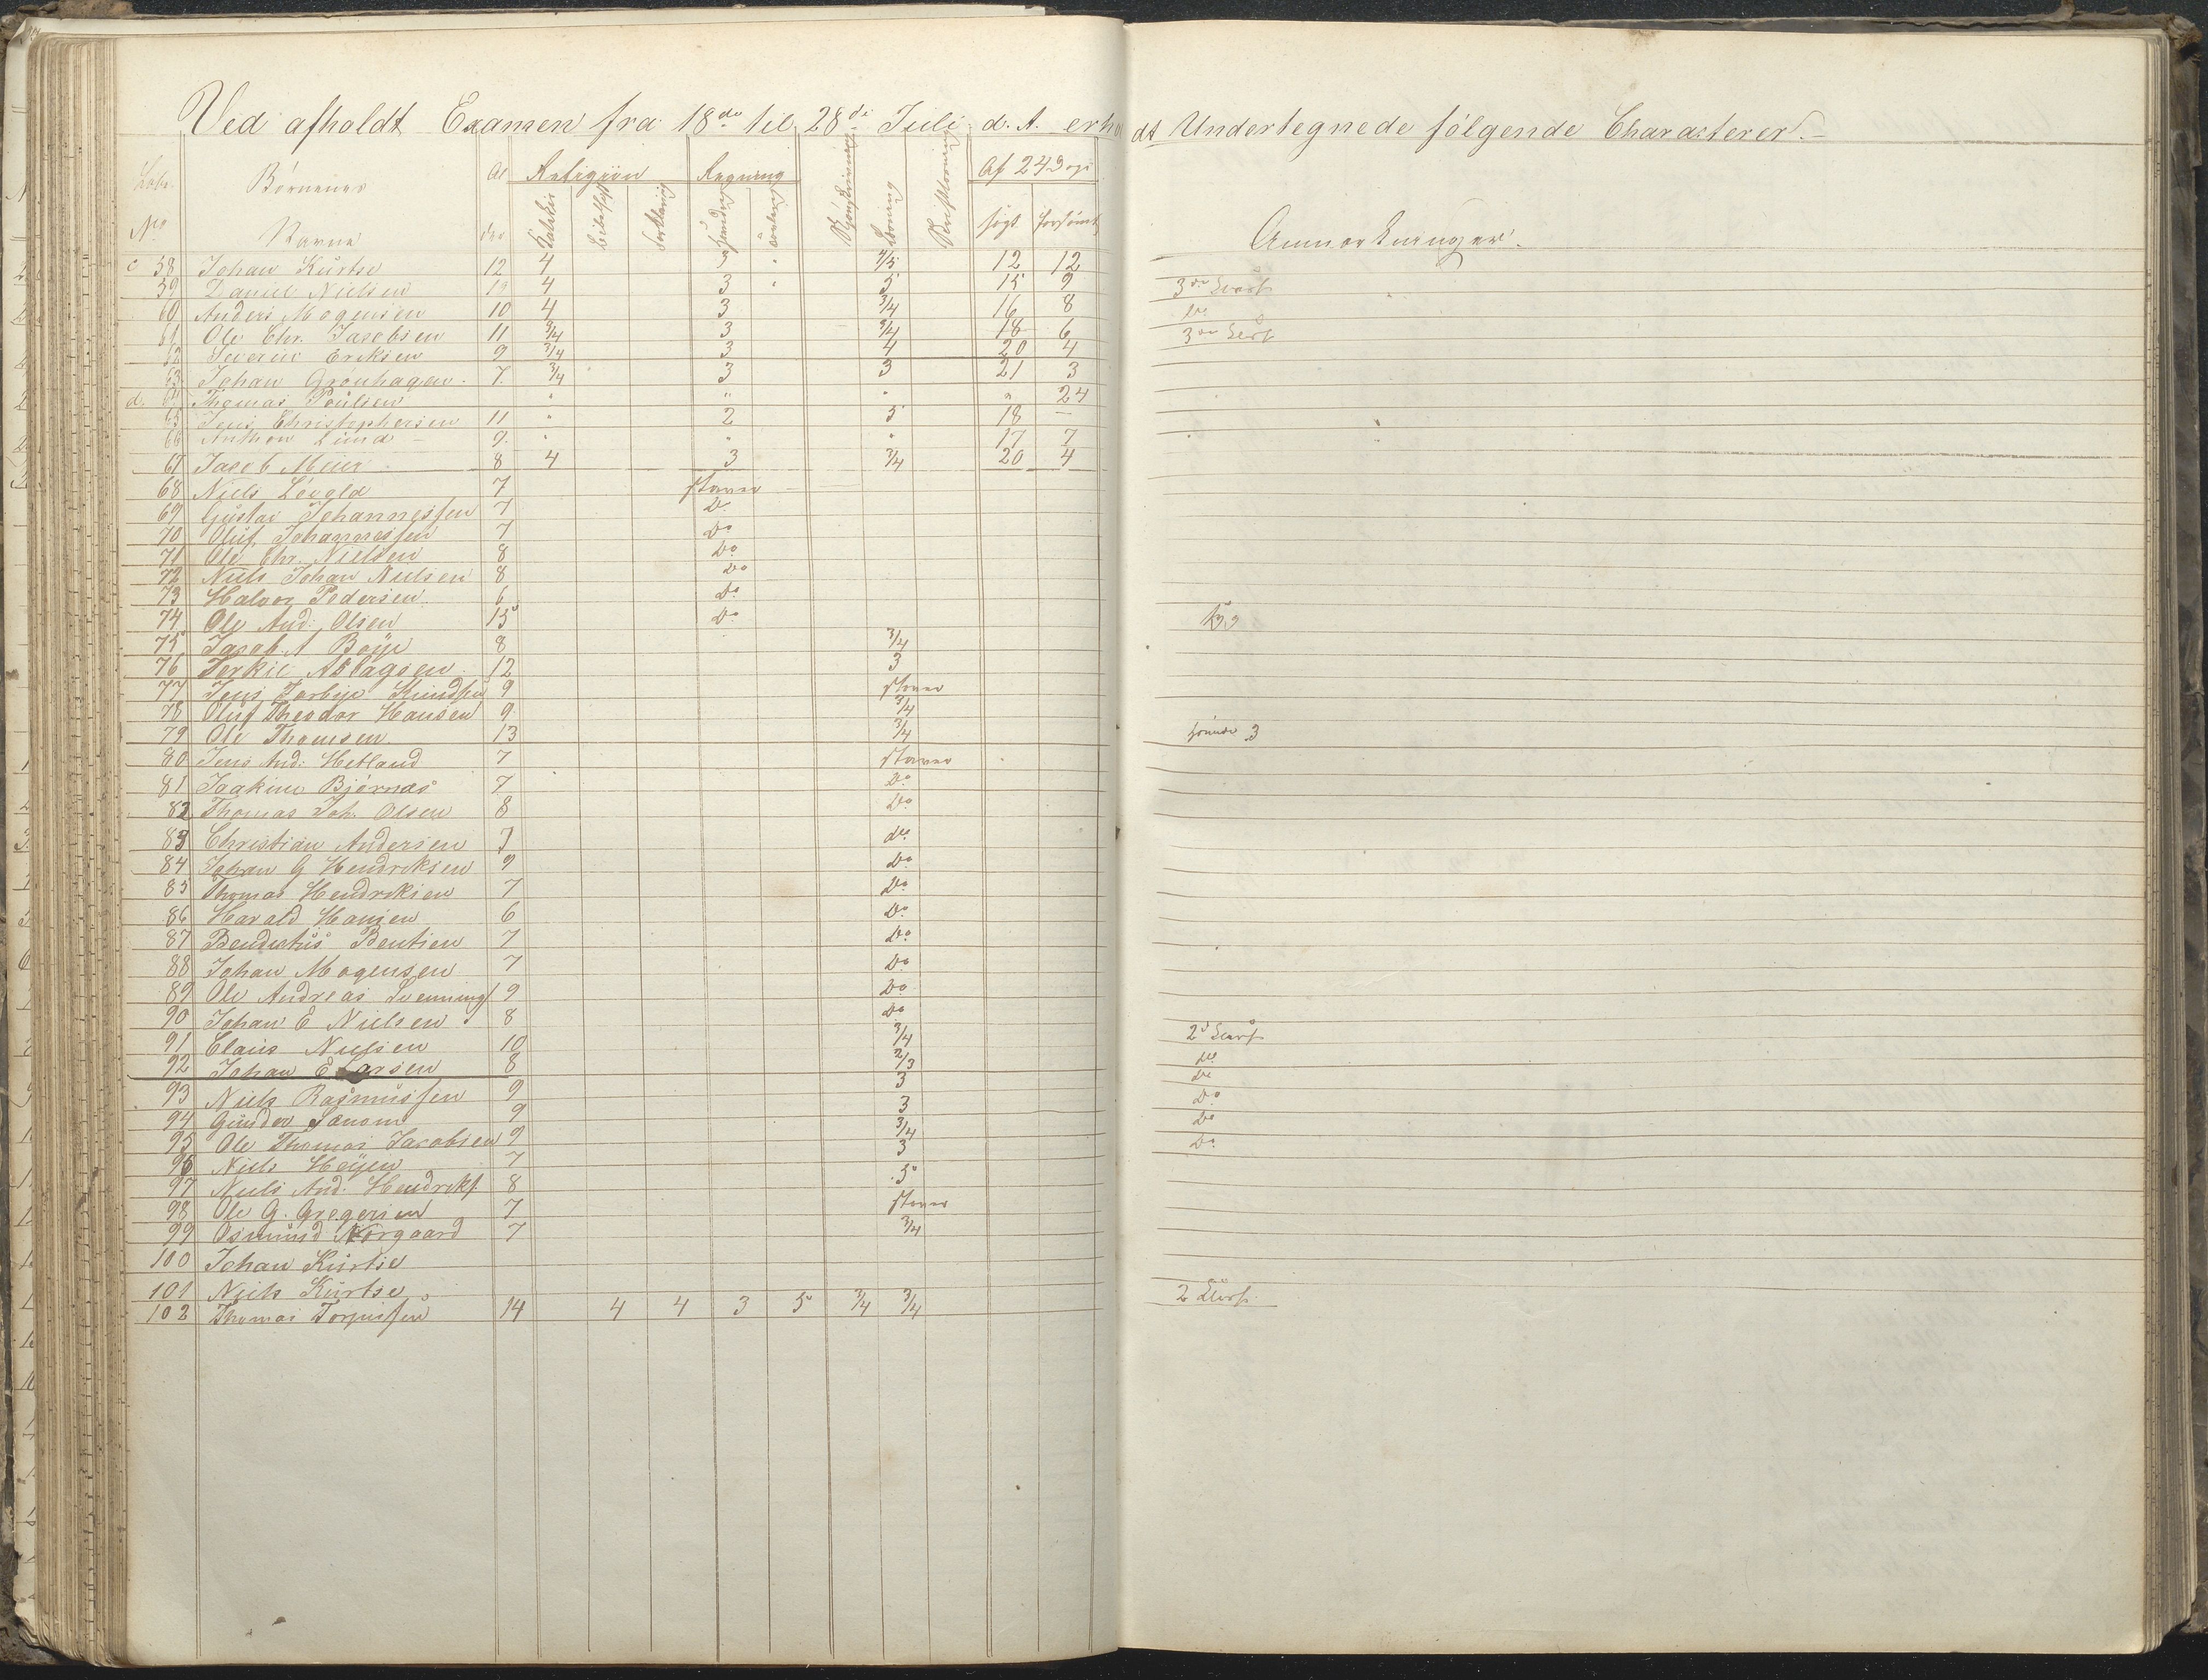 Ved afholdt Examen fra 18de til 28de Juli d. A. erholdt Undertegnede følgende Characterer.
Løbe No Børnenes Navne Al der Religion Regning Skjønskrivning Læsning Af 24 Dage
søgt forsømt
Anmærkninger.
c 58 Johan Kurtse 12 4 3 " 12 12
59 Daniel Nielsen 4 3 " 5 15 9 3die
60 Anders Mogensen 10 4 3 3/4 16 8 do
61 Ole Chr. Jacobsen 11 3/4 3 3/4 18 6 3die
62 Severin Eriksen 9 3/4 3 4 20 4
63 Johan Grönhagen 7 3/4 3 3 21 3
d. 64 Thomas Poulsen " " " " 24
65 Jens Christophersen 11 " 2 5 18 –
66 Anthon Lund 9 " " " 17 7
67 Jacob Meier 8 4 3 3/4 20 4
68 Niels Lövold 7 staver
69 Gustav Johannessen 7 Do
70 Oluf Johannessen 7 Do
71 Ole Chr. Nielsen 8 Do
72 Niels Johan Nielsen 8 Do
73 Halvor Pedersen 6 Do
74 Ole And: Olsen 15 Do
75 Jacob A Boye 8 3/4
76 Terkil Aslagsen 12 3
77 Jens Knudsen 9 staver
78 Oluf Theodor Hansen 9 3/4
79 Ole Thomsen 13 3/4
80 Jens And: Hetland 7 staver
81 Joakim Bjørnæs 7 Do
82 Thomas Joh. Olsen 8 Do
83 Christian Andersen 7 do
84 Johan G Hendriksen 9 Do
85 Thomas Hendriksen 7 Do
86 Harald Hansen 6 Do
87 Bendictus Bentsen 7 Do
88 Johan Mogensen 7 Do
89 Ole Andreas 9 Do
90 Johan E Nielsen 8 Do
91 Claus Nielsen 10 3/4
92 Johan E Larsen 8 2/3 do
93 Niels Rasmussen 9 3 Do
94 Gunder 9 3 Do
95 Ole Thomas Jacobsen 9 3/4 Do
96 Niels Heyen 7 3 Do
97 Niels And. Hendriks. 8 5
98 Ole G. Gregersen 7 staver
99 Osmund Norgaard 7 3/4
100 Johan Kurtse
101 Niels Kurtse
102 Thomas 14 4 4 3 5 3/4 3/4